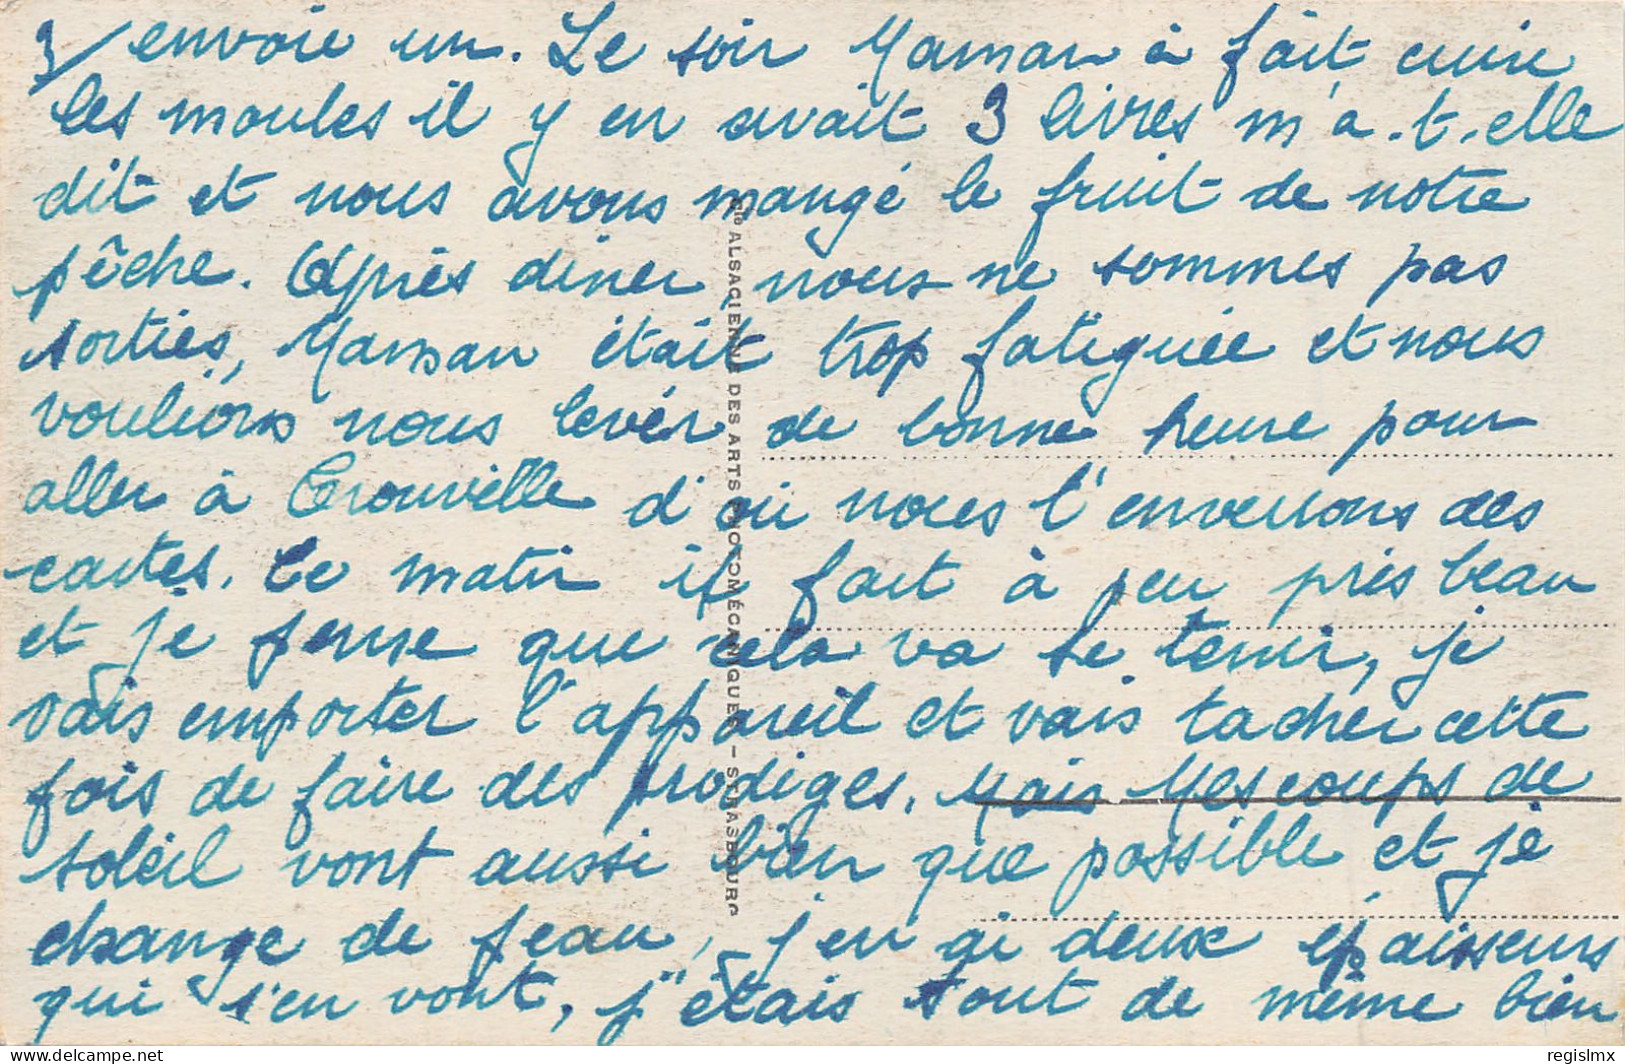 3/ envoie un. Le soir Maman à fait cuire
les moules il y en avait 3 livres m'a.t.elle
dit et nous avons mangé le fruit de notre
pêche. Après diner, nous ne sommes pas
sorties, Maman était trop fatiguée et nous
voulions nous lever de bonne heure pour
aller à Trouville d'où nous t'enverrons des
cartes. Ce matin il fait à peu près beau
et je pense que cela va se tenir, je
vais emporter l'appareil et vais tacher cette
fois de faire des prodiges. Mais Mes coups de
soleil vont aussi bien que possible et je
change de peau, j'en ai deux épaisseurs
qui s'en vont, j'étais tout de même bien
Cie ALSACIENNE DES ARTS PHOTOMÉCANIQUES – STRASBOURG
delcampe.net
regislmx